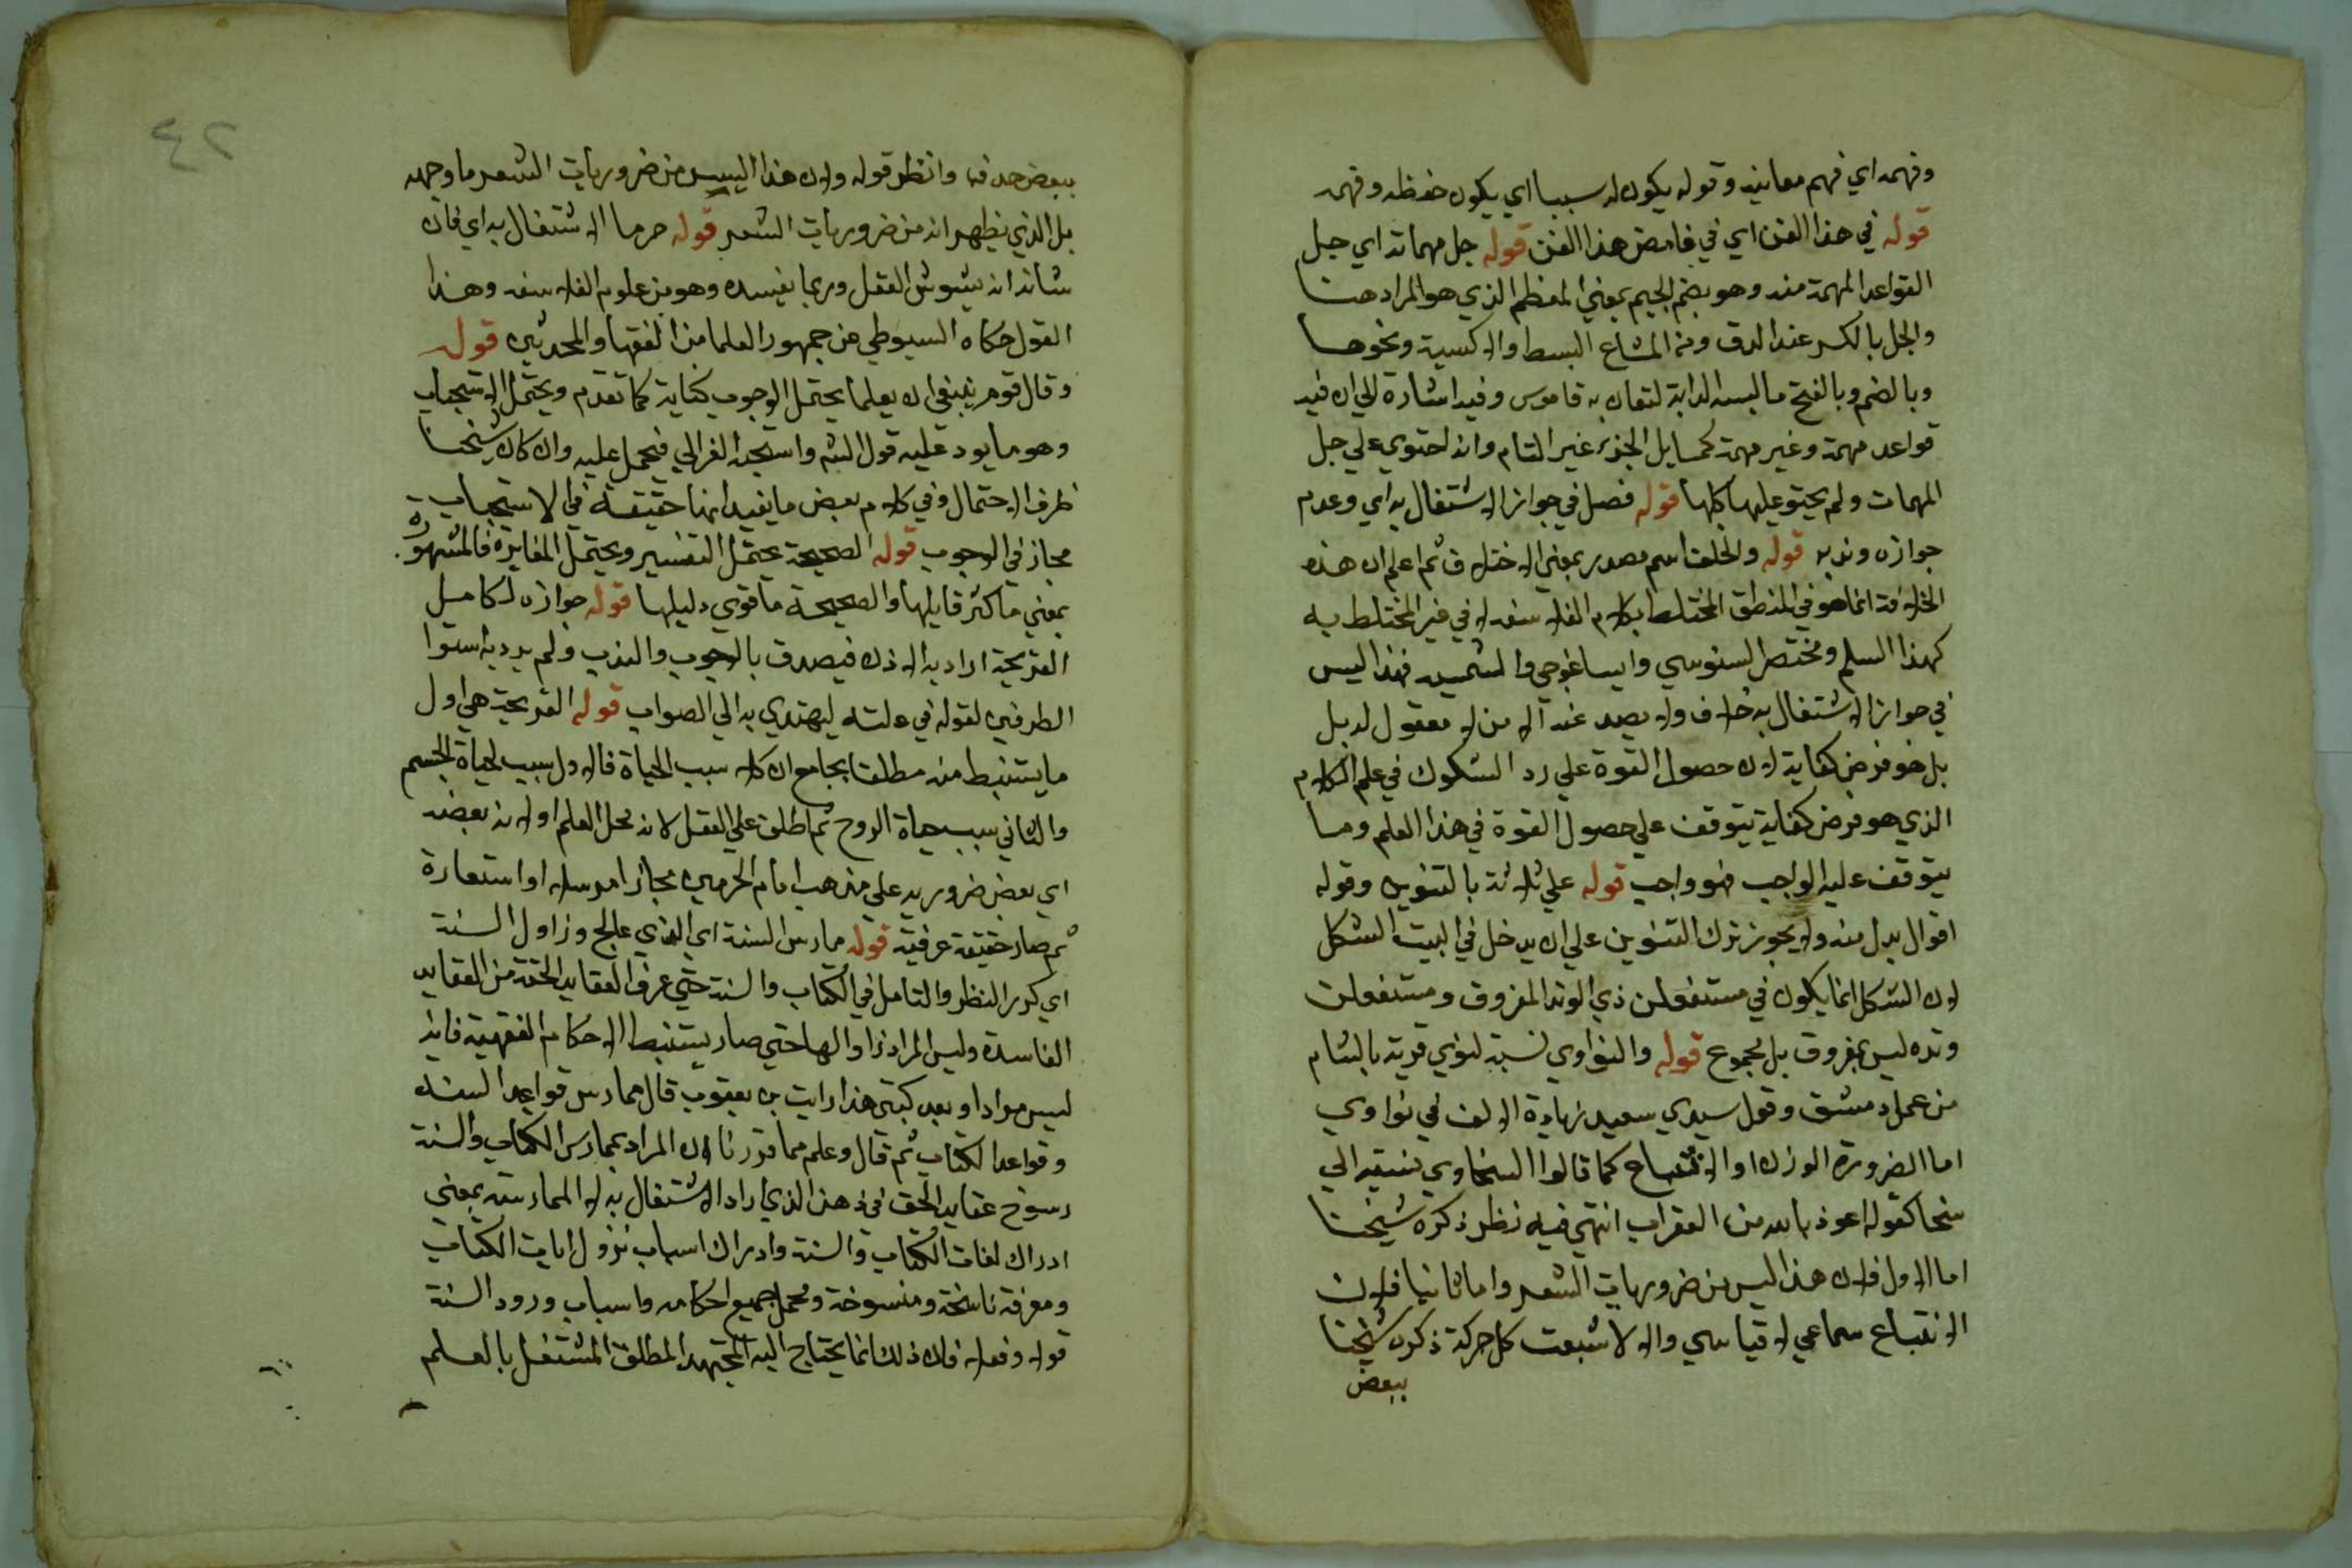 وفهمه اي فهم معانيه وقوله يكون له سببا اي يكون حفظه وفهمه
قوله في هذا الفن اي في غامض هذا الفن قوله جل مهماته اي جل
القواعد المهمة منه وهو بضم الجيم بمعني المعظم الذي هو المراد هنا
والجل بالكسر عند الدق ومن المتاع البسط والاكسية ونحوها
وبالضم وبالفتح ما البسه الدابة لتصان به قاموس وفيه اشارة الي ان فيه
قواعد مهمة وغير مهمة كمسايل الجزء غير التام وانه احتوي علي جل
المهمات ولم يحتو عليها كلها قوله فصل في جواز الاشتغال به اي وعدم
جوازه وندبه قوله والخلف اسم مصدر بمعني الاختلاف ثم اعلم ان هذه
الخلافة انما هو في المنطق المختلط بكلام الفلاسفه لا في غير المختلط به
كهذا السلم ومختصر السنوسي وايساغوجي والشمسيه فهذا ليس
في جواز الاشتغال به خلاف ولا يصد عنه الا من لا معقول له بل
بل هو فرض كفاية لان حصول القوة علي رد الشكوك في علم الكلام
الذي هو فرض كفاية يتوقف علي حصول القوة في هذا العلم وما
يتوقف عليه الواجب فهو واجب قوله علي ثلاثة بالتنوين وقوله
اقوال بدل منه ولا يجوز ترك التنوين علي ان يدخل في البيت الشكل
لان الشكل انما يكون في مستفعلن ذي الوتد المفروق ومستفعلن
وتده ليس بمفروق بل مجموع قوله والنواوي نسبة لنوي قرية بالشام
من عمل دمشق وقول سيدي سعيد زيادة الالف في نواوي
اما الضرورة الوزن او الاشباع كما قالوا السخاوي نسبة الي
سخا كقوله اعوذ بالله من العقراب انتهي فيه نظر ذكره شيخنا
اما الاول فلان هذا ليس من ضروريات الشعر واما ثانيا فلان
الاشباع سماعي لا قياسي والا لاشبعت كل حركة ذكره شيخنا
ببعض
٤٢
ببعض حذف وانظر قوله ولان هذا ليس من ضروريات الشعر ما وجهه
بل الذي يظهر انه من ضروريات الشعر قوله حرما الاشتغال به اي فان
شانه انه يشوش العقل وربما يفسده وهو من علوم الفلاسفه وهذا
القول حكاه السيوطي عن جمهور العلما من الفقها والمحدثين قوله
وقال قوم ينبغي ان يعلما يحتمل الوجوب كفاية كما تقدم ويحتمل الاستحباب
وهو ما يود عليه قول الشه واستحبه الغزالي فيحمل عليه وان كان شيخنا
طرف الاحتمال وفي كلام بعض ما يفيد انها حقيقة في الاستحباب
مجاز في الوجوب قوله الصحيحة يحتمل التفسير ويحتمل المغايرة فالمشهورة
بمعني ما كثر قايلها والصحيحة ما قوي دليلها قوله جوازه لكامل
القريحة اراد به الاذن فيصدق بالوجوب والندب ولم يرد به استوا
الطرفين لقوله في علته ليهتدي به الي الصواب قوله القريحة هي اول
ما يستنبط منه مطلقا بجامع ان كلا سبب الحياة فالاول سبب لحياة الجسم
والثاني سبب حياة الروح ثم اطلق علي العقل لانه محل العلم او لانه بعضه
اي بعض ضروريه علي مذهب امام الحرمين مجازا مرسلا او استعارة
ثم صار حقيقة عرفية قوله ممارس السنة اي الذي عالج وزاول السنة
اي كرر النظر والتامل في الكتاب والسنة حتي عرف العقايد الحقة من العقايد
الفاسدة وليس المراد زاوالها حتي صار يستنبط الاحكام الفقهية فانه
ليس مرادا وبعد كتبي هذا رايت بن يعقوب قال ممارس قواعد السنه
وقواعد الكتاب ثم قال وعلم مما قررنا ان المراد بممارس الكتاب والسنة
رسوخ عقايد الحق في ذهن الذي اراد الاشتغال به لا الممارسة بمعني
ادراك لغات الكتاب والسنة وادراك اسباب نزول ايات الكتاب
ومعرفة ناسخة ومنسوخة ومحمل جميع احكامه واسباب ورود السنة
قولا وفعلا فلان ذلك انما يحتاج اليه المجتهد المطلق المشتغل بالعلم